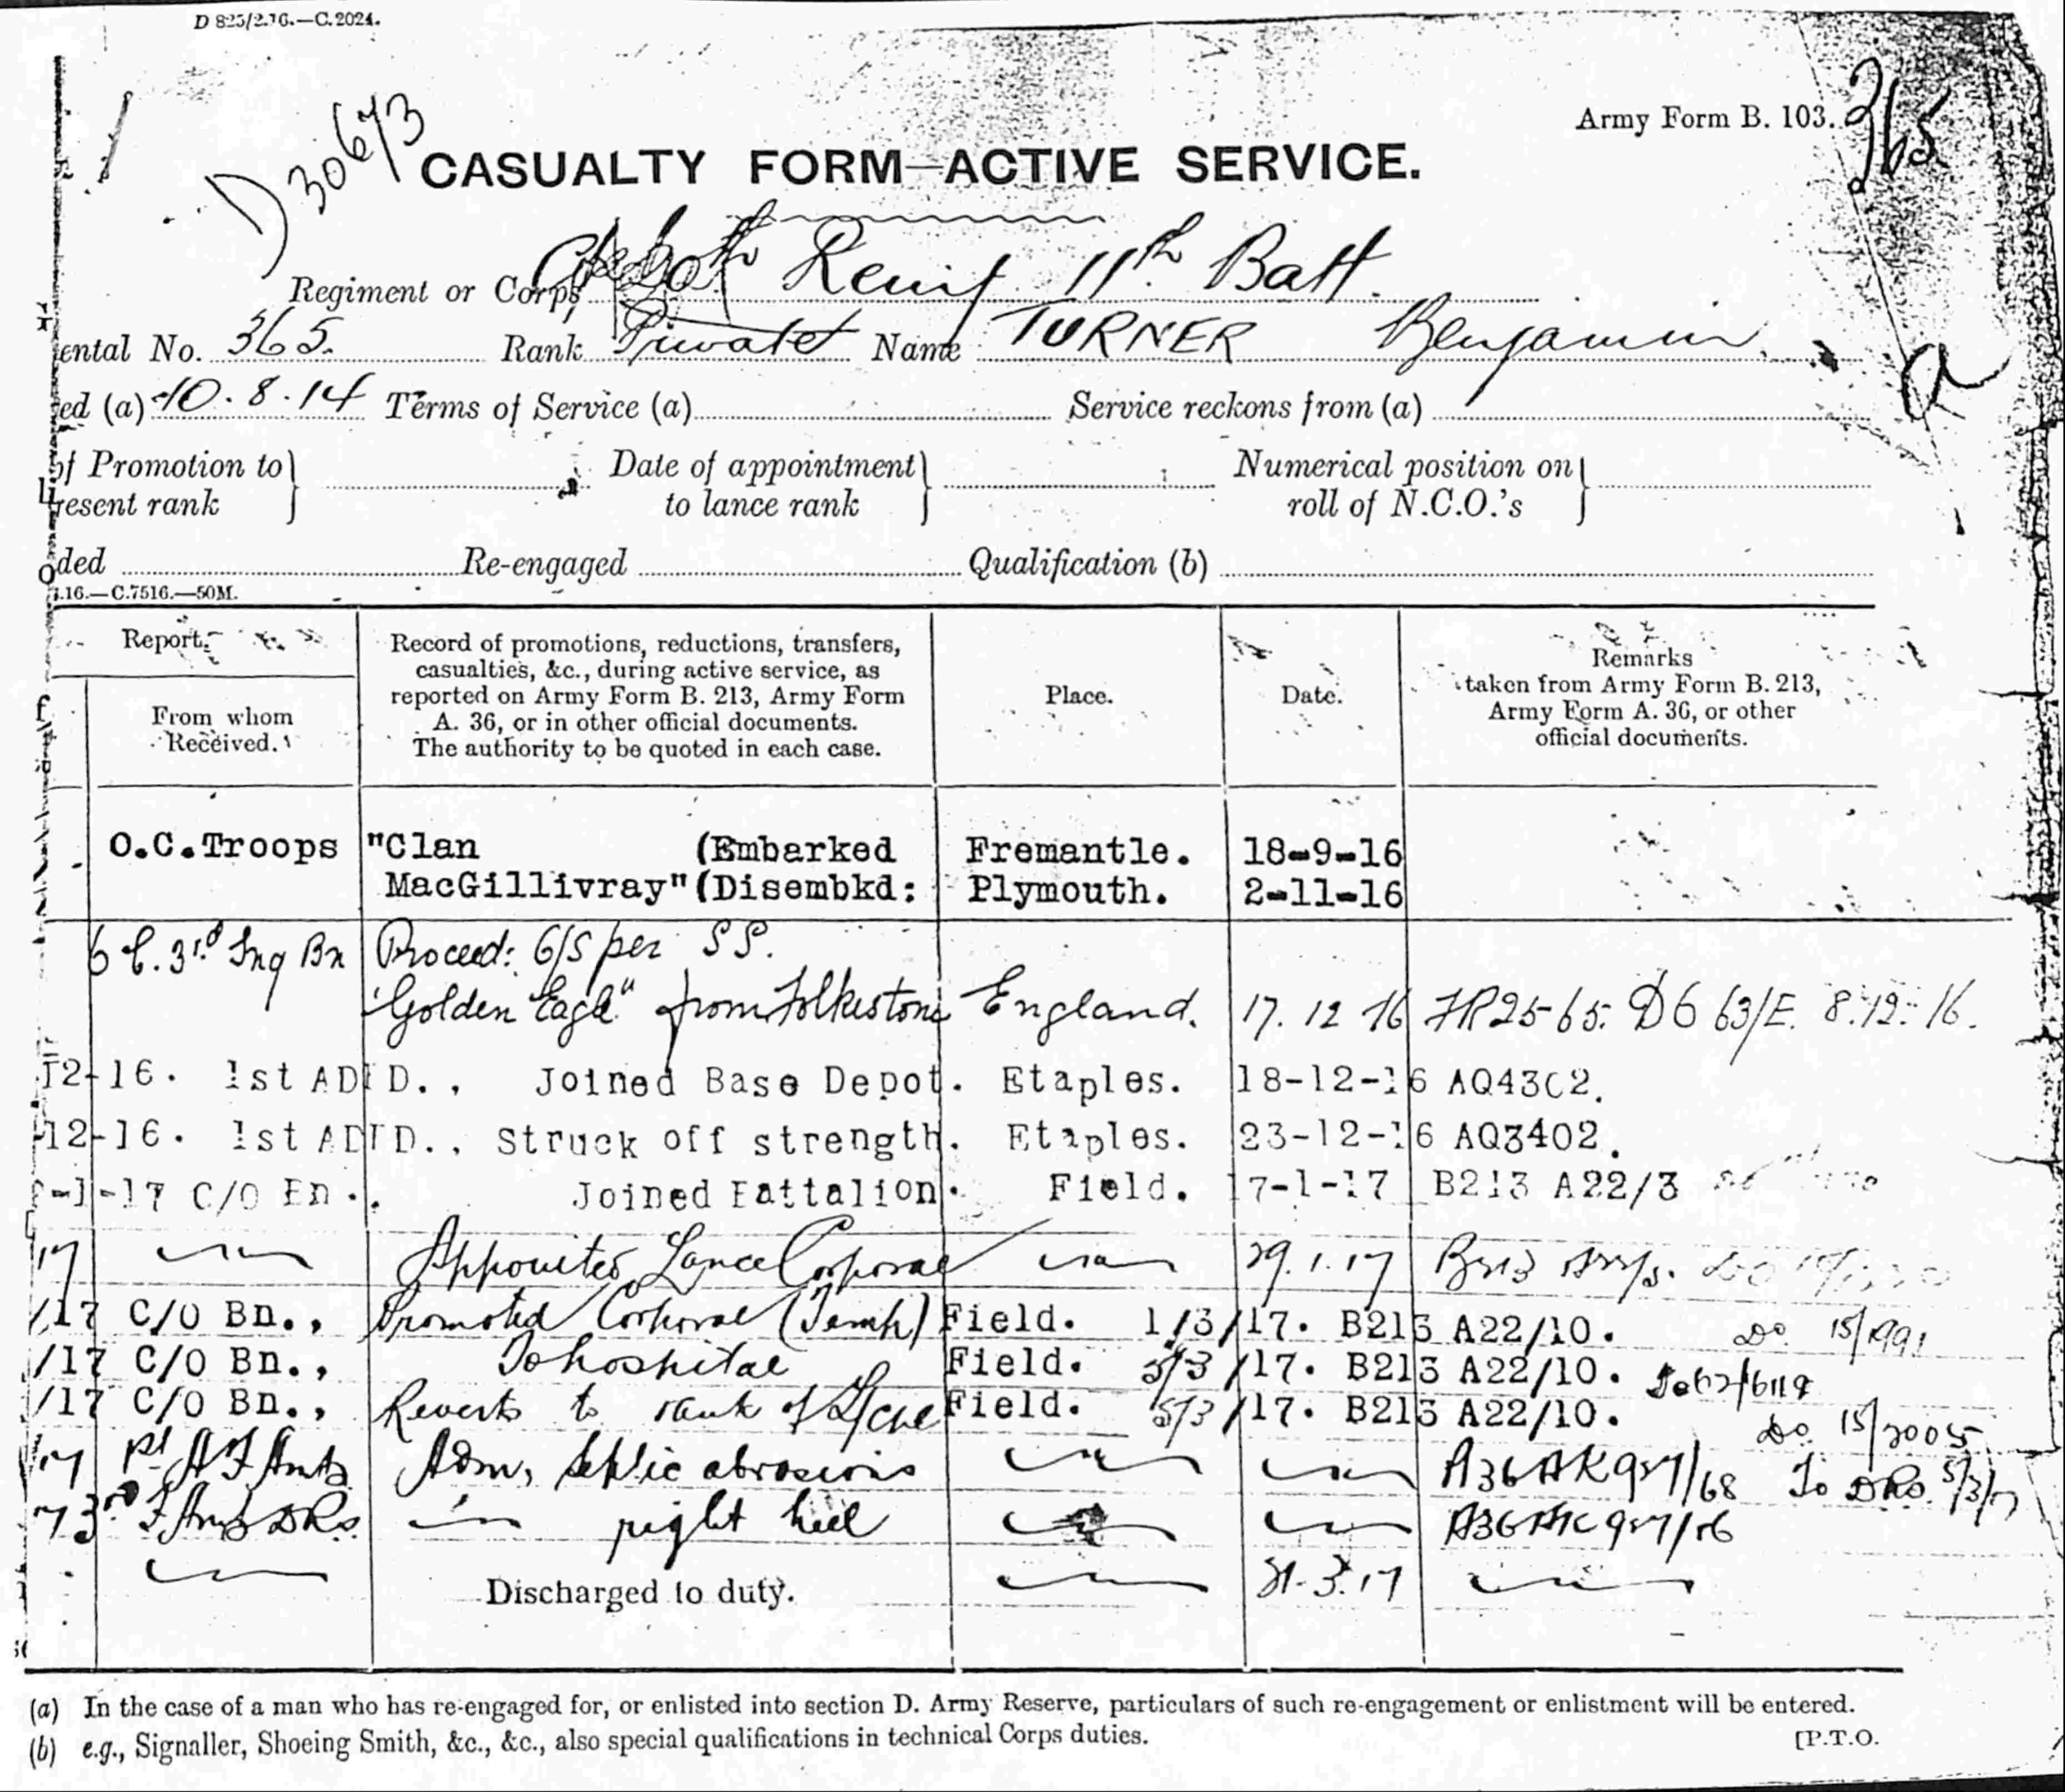 D 825/2.16.—C.2024.
Army Form B. 103.
365
D 30673
CASUALTY FORM—ACTIVE SERVICE.
Regiment or Corps Reinf 11th Batt.
ental No. 365. Rank Private Name TURNER Benjamin
ed (a) 10.8.14 Terms of Service (a) Service reckons from (a)
a
of Promotion to resent rank } Date of appointment to lance rank } Numerical position on roll of N.C.O.'s }
ded Re-engaged Qualification (b)
.16.—C.7516.—50M.
Report. Record of promotions, reductions, transfers, casualties, &c., during active service, as reported on Army Form B. 213, Army Form A. 36, or in other official documents. The authority to be quoted in each case. Place. Date. Remarks taken from Army Form B. 213, Army Form A. 36, or other official documents.
From whom Received.
O.C.Troops "Clan (Embarked Fremantle. 18-9-16
MacGillivray" (Disembkd: Plymouth. 2-11-16
3rd Tng Bn Proceed: O/S per SS.
"Golden Eagle" from Folkestone England. 17.12.16 8.12.16.
12-16. 1st ADBD., Joined Base Depot. Etaples. 18-12-16 AQ4302.
12-16. 1st ADBD., Struck off strength. Etaples. 23-12-16 AQ3402.
-1-17 C/O Bn., Joined Battalion. Field. 17-1-17 B213 A22/3
17 Appointed Lance Corporal 29.1.17 B213
/17 C/O Bn., Promoted Corporal (Temp) Field. 1/3/17. B213 A22/10. DO 15/1991
/17 C/O Bn., To hospital Field. 5/3/17. B213 A22/10.
/17 C/O Bn., Reverts to rank of L/Cpl Field. 5/3/17. B213 A22/10. DO 15/2005
17 1st A F Amb Adm, septic abrasions To DRS 5/3/17
17 3rd F Amb DRS right heel
Discharged to duty. 31.3.17
(a) In the case of a man who has re-engaged for, or enlisted into section D. Army Reserve, particulars of such re-engagement or enlistment will be entered.
(b) e.g., Signaller, Shoeing Smith, &c., &c., also special qualifications in technical Corps duties. [P.T.O.